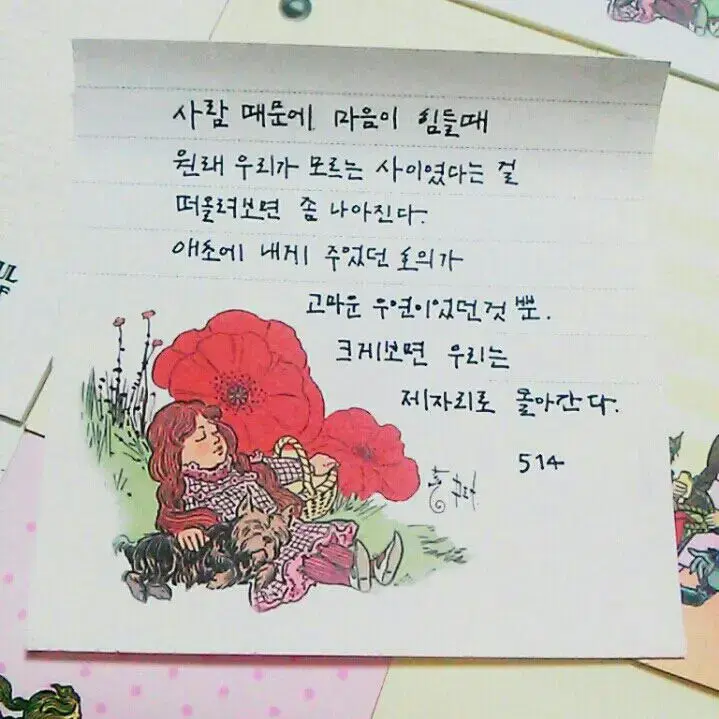 사람 때문에 마음이 힘들때
원래 우리가 모르는 사이였다는 걸
떠올려보면 좀 나아진다.
애초에 내게 주었던 호의가
고마운 우연이었던것 뿐.
크게보면 우리는
제자리로 돌아간다.
514